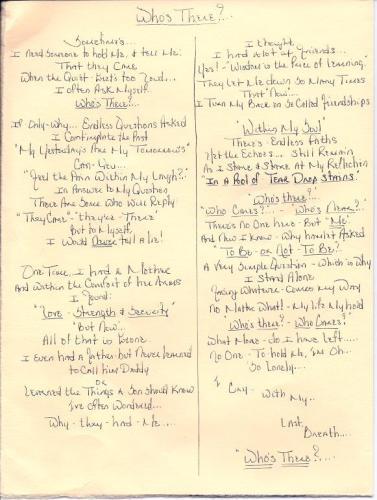 Who's There?...
Sometimes...
I need someone to hold Me, & tell Me.
That they Care
When the Quiet - Gets too Loud...
I often Ask Myself...
Who's There?...
If Only - Why... Endless Questions Asked
I Contemplate the Past
"My Yesterdays Are My Tomorrows"
Can - You...
"Feel the Pain Within My Laugh?."
In Answer to My Question
There Are Some Who Will Reply
"They Care" - "they're - There"
But to Myself
I Would Never tell A lie!
One Time, I had A Mother
And Within the Comfort of her Arms
I found:
"Love - Strength & Security"
"But Now...
All of that is Gone
I Even had A father - but Never learned
to Call him Daddy
OR
Learned the Things A Son should Know
I've often Wondered...
Why - they - had - Me....
I thought
I had A lot of friends...
Yes! - "Wisdom is the Price of Learning."
They let Me down So Many Times
That "Now"...
I Turn My Back on So Called friendships
"Within My Soul"
There's - Endless Paths
Yet the Echoes... Still Remain
As I Stare & Stare At My Reflection
In A Pool of "TEAR DROP STAINS."
"Who's there?"
"Who Cares?"... - "Who's Near?"
There's No One here - But "Me"
And Now I Know - Why Hamlet Asked
"To Be - or Not - To Be?"
A Very Simple Question - Which is Why
I Stand Alone
Facing Whatever - Comes My Way
No Matter What! - My life May hold
"Who's there? - Who Cares?"
What More - do I have left.....
No One - To hold Me, I'm Oh...
So Lonely...
I
Cry -
With
My..
Last
Breath....
"Who's There?....